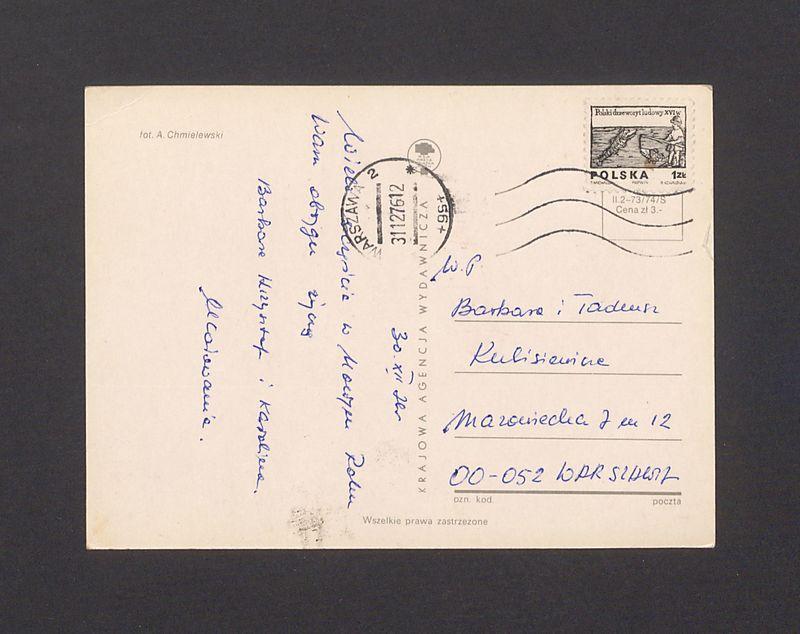 fot. A. Chmielewski
Wiele szczęścia w Nowym Roku
Wam obojgu życzą
Barbara Krzysztof i Karolina.
Całowania.
30.XII 76r
WARSZAWA 2
31127612
* 56 *
KRAJOWA AGENCJA WYDAWNICZA
Polski drzeworyt ludowy XVI w.
POLSKA 1ZŁ
II.2-73/74/S
Cena zł 3.-
W.P
Barbara i Tadeusz
Kulisiewicz
Mazowiecka 7 m 12
00-052 WARSZAWA
ozn. kod. poczta
Wszelkie prawa zastrzeżone